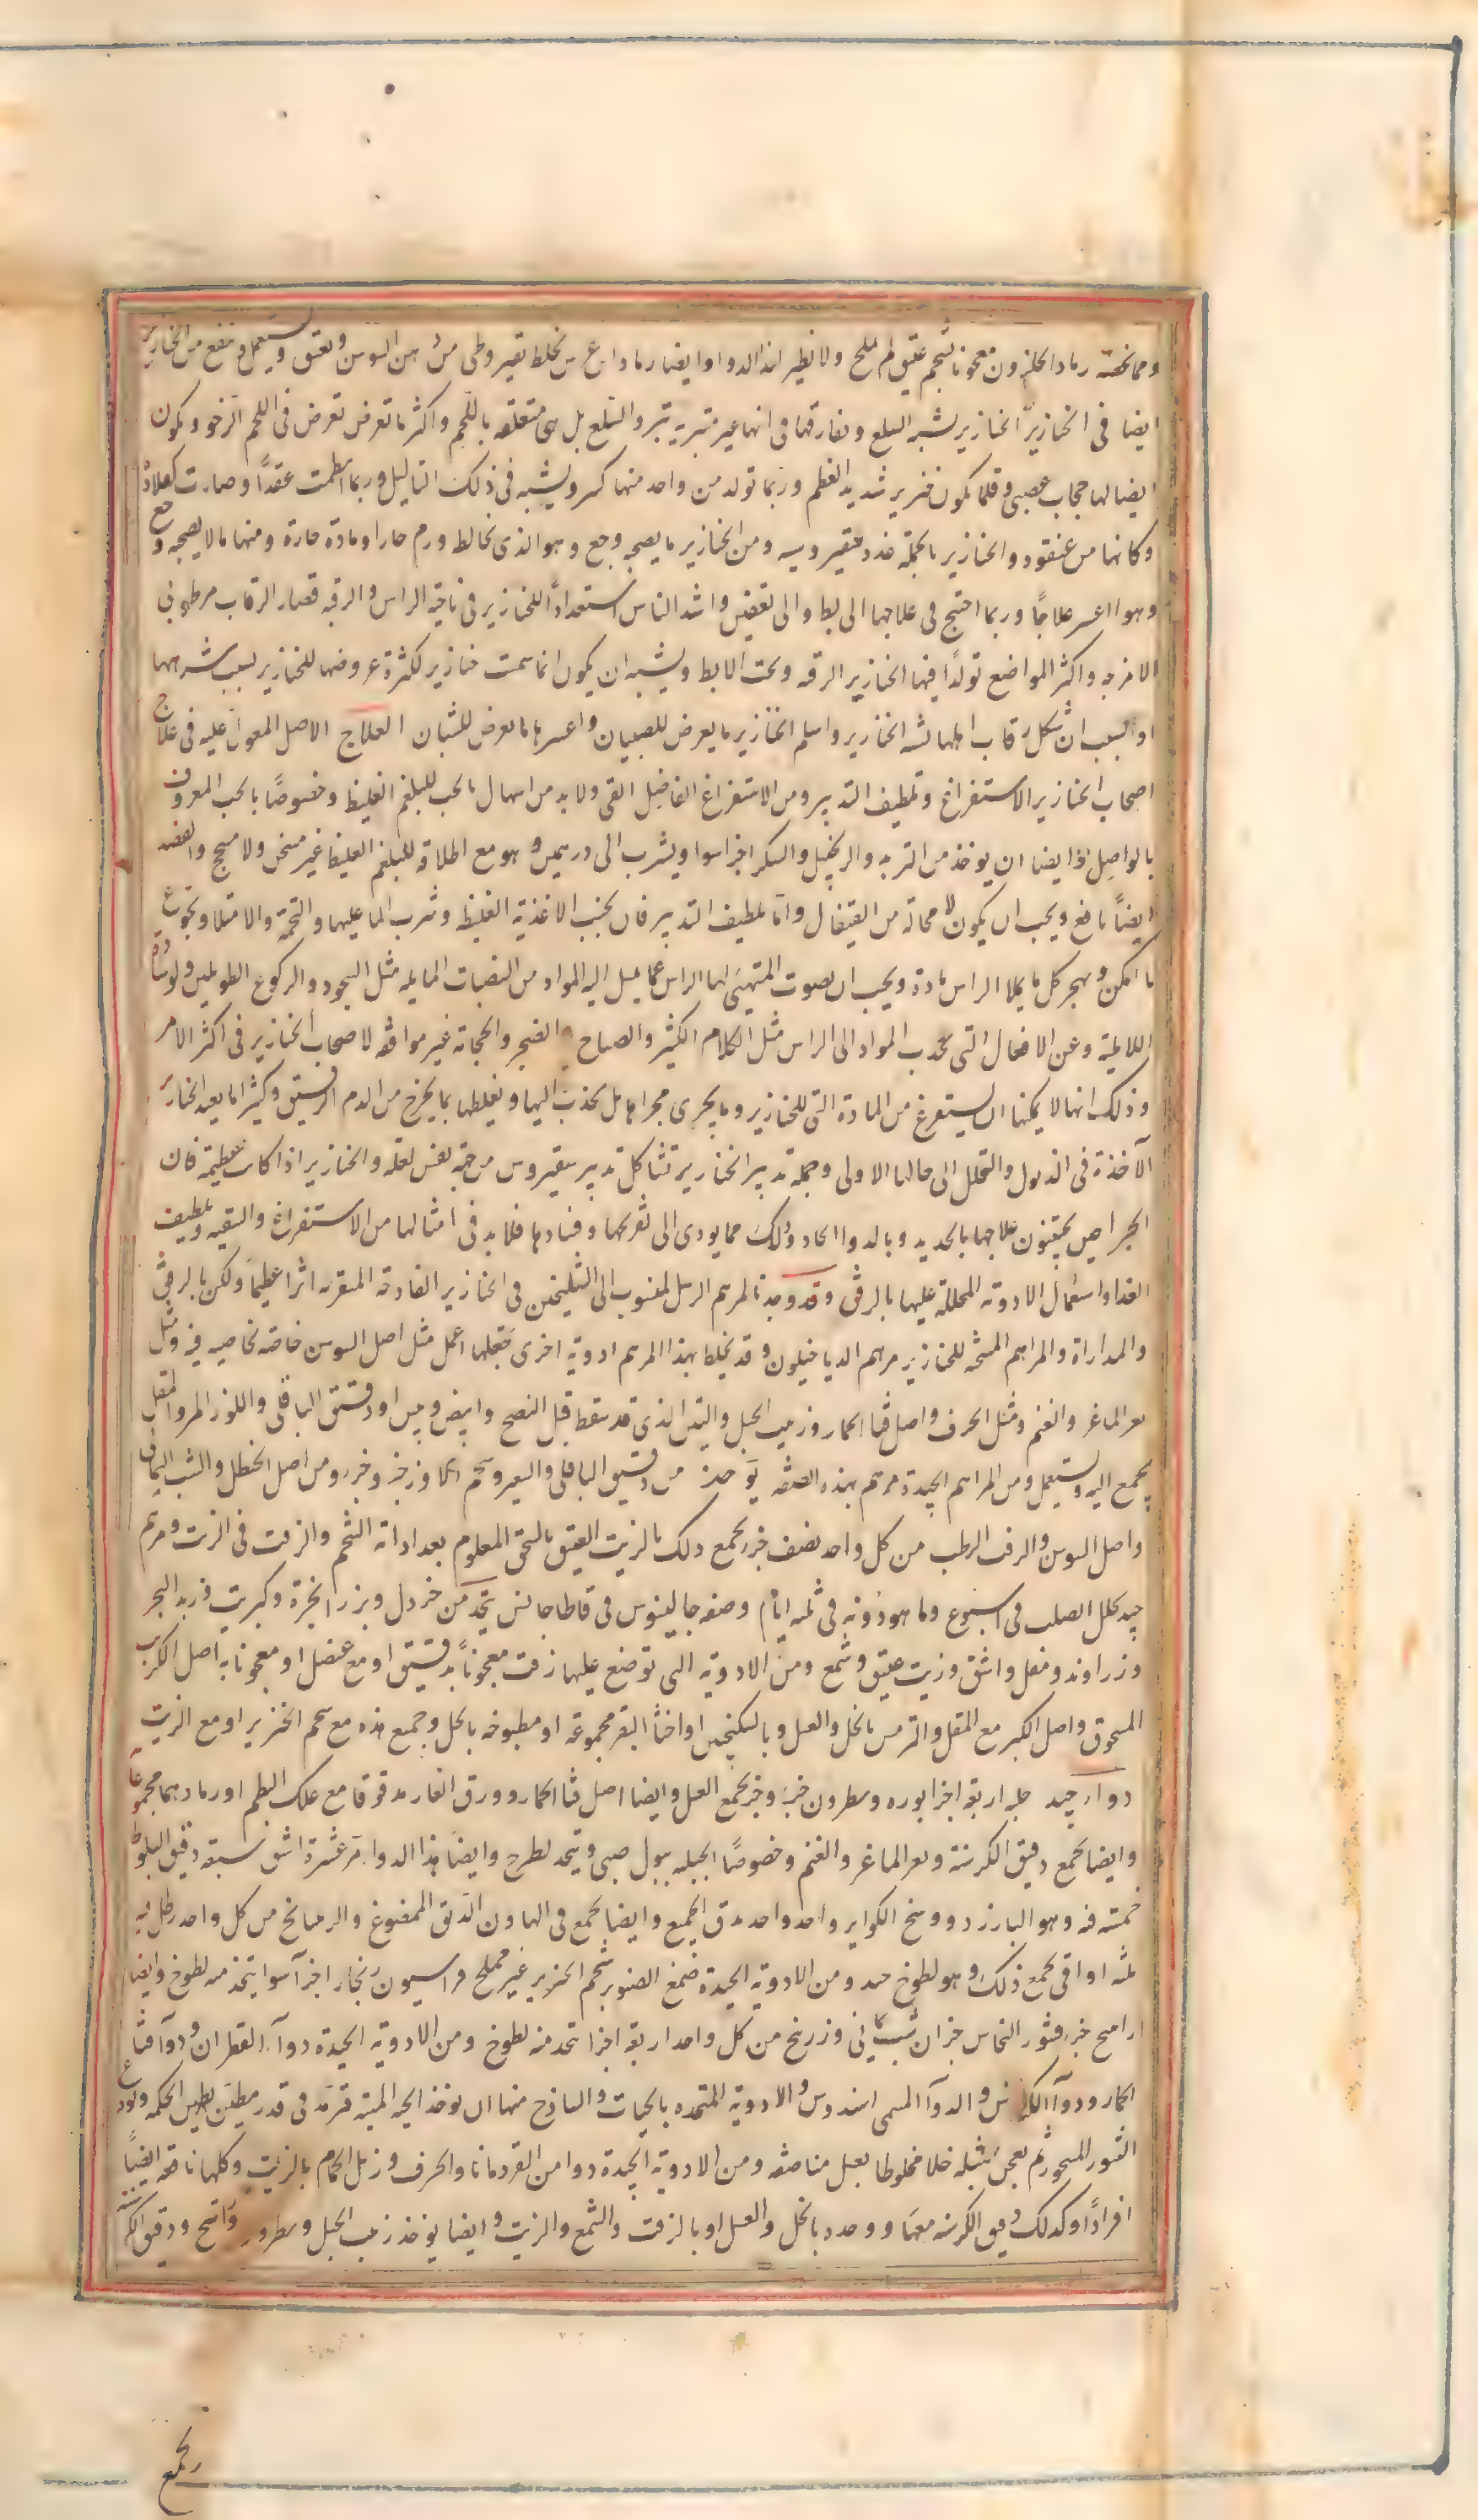 ومما نخصه رماد الحلزون معجونا بشحم عتيق لم يملح ولا نظير لهذا الدواء وايضا رماد ابن عرس يخلط بقيروطى من دهن السوسن ويعتق ويستعمل وينفع من الخنازير
ايضا فى الخنازير الخنازير يشبه السلع ويفارقها فى انها غير متبرية تبرؤ السلع بل هى متعلقه باللحم واكثر ما تعرض تعرض فى اللحم الرخو ويكون
ايضا لها حجاب عصبى وقلما يكون خنزير شديد العظم وربما تولد من واحد منها كثير ويشبه فى ذلك الثاليل وربما انتظمت عقدًا وصارت كقلادة
وكانها من عنقود والخنازير بالجملة غدد سقيروسيه ومن الخنازير ما يصحبه وجع وهو الذى يخالط ورم حار او مادة حارة ومنها ما لا يصحبه وجع
وهو اعسر علاجًا وربما احتيج فى علاجها الى بط والى تعفين واشد الناس استعدادًا للخنازير فى ناحية الراس والرقبه قصار الرقاب مرطوبى
الامزجه واكثر المواضع تولدًا فيها الخنازير الرقبه وتحت الابط ويشبه ان يكون انما سمت خنازير لكثرة عروضها للخنازير بسبب شرهها
او بسبب ان شكل رقاب اهلها يشبه الخنازير واسلم الخنازير ما يعرض للصبيان واعسرها ما يعرض للشبان العلاج الاصل المعول عليه فى علاج
اصحاب الخنازير الاستفراغ وتلطيف التدبير ومن الاستفراغ الفاضل القى ولا بد من اسهال بالحب للبلغم الغليظ وخصوصًا بالحب المعروف
بالواصل اذ ايضا ان يوخذ من التربد والزنجبيل والسكر اجزا سوا ويشرب الى درهمين وهو مع اطلاقه للبلغم الغليظ غير مسخن ولا مسحج والفصد
ايضًا نافع ويجب ان يكون لا محالة من القيفال واما تلطيف التدبير فان يجنب الاغذية الغليظه وشرب الما عليها والتخمة والامتلا ويجوع
ما امكن ويهجر كل ما يملا الراس مادة ويجب ان يصون المتهيئ لها الراس عما يميل اليه المواد من النصبات المايله مثل السجود والركوع الطويلين والوسادة
اللاطية وعن الافعال التى تجذب المواد الى الراس مثل الكلام الكثير والصداع والضجر والحجامة غير موافقه لاصحاب الخنازير فى اكثر الامر
وذلك انها لا يمكنها ان يستفرغ من المادة التى للخنازير وما يجرى مجراها بل تجذب اليها وتغلظها بما يخرج من الدم الرقيق وكثيرا ما يعيد الخنازير
الآخذة فى الذبول والتحلل الى حالها الاولى وجملة تدبير الخنازير تشاكل تدبير سقيروس من جهة نفس العله والخنازير اذا كانت عظيمة فان
الجراحين يجتنبون علاجها بالحديد وبالدوا الحاد وذلك مما يودى الى تقرحها وفسادها فلا بد فى امثالها من الاستفراغ والتنقيه وتلطيف
الغدا واستعمال الادويه المحللة عليها بالرفق وقد وجدنا لمرهم الرسل المنسوب الى الشليخين فى الخنازير الفادحه المتقرحه اثرا عظيما ولكن بالرفق
والمداراة والمراهم المتخذه للخنازير مرهم الدياخيلون وقد يخلط بهذا المرهم ادويه اخرى فتجعلها اعمل مثل اصل السوسن خاصه بخاصيه فيه ومثل
بعر الماعز والغنم ومثل الحرف واصل قثا الحمار وزبيب الجبل والتين الذى قد سقط قبل النضج وابيض ويبس او دقيق الباقلى واللوز المر والمقل
يجمع اليه ويستعمل ومن المراهم الجيدة مرهم بهذه الصفه يؤخذ من دقيق الباقلى والشعير وشحم الحمار وزفت جزء جزء ومن اصل الحنظل والشب اليمانى
واصل السوسن والزفت الرطب من كل واحد نصف جزء يجمع ذلك بالزيت العتيق بالسحق المعلوم بعد اذابة الشحم والزفت فى الزيت ومرهم
جيد يحلل الصلب فى اسبوع وما هو دونه فى ثلثه ايام وصفه جالينوس فى قاطاجانس يتخذ من خردل وبزر انجرة وكبريت وزبد البحر
وزراوند ومقل واشق وزيت عتيق وشمع ومن الادويه التى توضع عليها زفت معجونًا بدقيق او مع عنصل او معجونا به اصل الكرنب
المسحوق واصل الكبر مع المقل والترمس بالخل والعسل وبالسكنجبين او اخثا البقر مجموعه او مطبوخه بالخل وجميع هذه مع شحم الخنزير او مع الزيت
دواء جيد حلبه اربعة اجزا بوره ونطرون جزء وجزء يجمع بالعسل وايضا اصل قثا الحمار وورق الغار مدقوقا مع علك البطم او رمادهما مجموعًا
وايضا يجمع دقيق الكرسنة وبعر الماعز والغنم وخصوصًا الجبليه ببول صبى ويتخذ لطوخ وايضا هذا الدواء مر عشرة اشق سبعه دقيق البلوط
خمسه قنه وهو البارزد ووسخ الكواير واحد واحد يدق الجميع وايضا يجمع فى الهاون الدبق الممضوغ والريتيانج من كل واحد رطل قنه
ثلثه اواقى يجمع ذلك وهو لطوخ جيد ومن الادويه الجيدة صمغ الصنوبر شحم الخنزير غير مملح فراسيون زنجار اجزآ سوا يتخذ منه لطوخ وايضا
زاج جزء قشور النحاس جزان شب يمانى وزرنيخ من كل واحد اربعة اجزا يتخذ منه لطوخ ومن الادويه الجيدة دوآء القطران ودوآء قثا
الحمار ودوآ الكرنس والدوآ المسمى اسندوس والادوية المتخذه بالحيات والساذج منها ان يوخذ الحيه الميته فترمد فى قدر مطين بطين الحكمه ويودع
التنور المسجور ثم يعجن بمثله خلا مخلوطا بعسل مناصفه ومن الادويه الجيدة دوا من القردمانا والحرف وزبل الحمام بالزيت وكلها نافعه ايضًا
افرادًا وكذلك دقيق الكرسنه معها ووحده بالخل والعسل او بالزفت والشمع والزيت وايضا يوخذ زبيب الجبل ونطرون وراتينج ودقيق الكرسنه
ويجمع